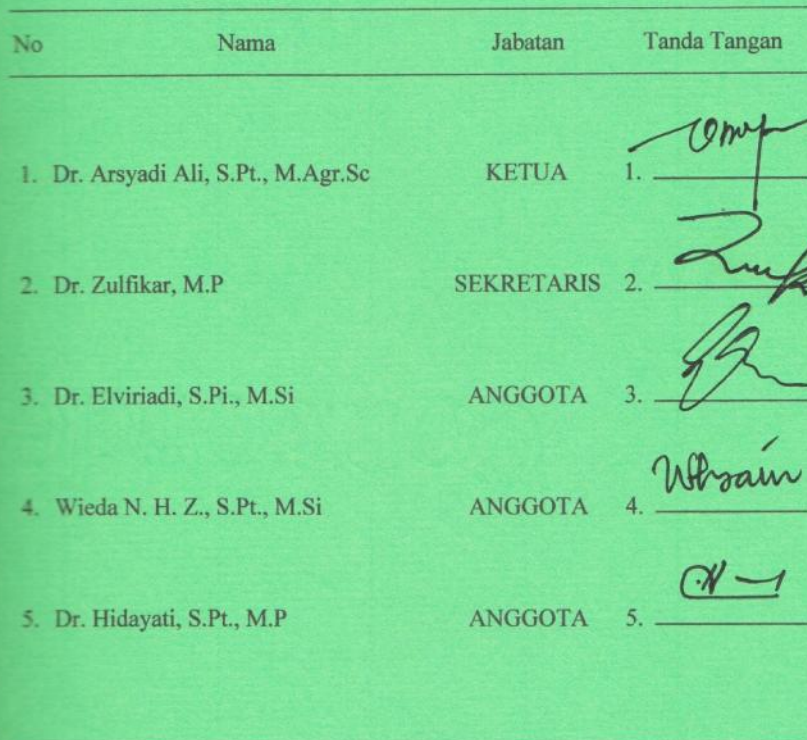 No Nama Jabatan Tanda Tangan
1. Dr. Arsyadi Ali, S.Pt., M.Agr.Sc KETUA 1.
2. Dr. Zulfikar, M.P SEKRETARIS 2.
3. Dr. Elviriadi, S.Pi., M.Si ANGGOTA 3.
4. Wieda N. H. Z., S.Pt., M.Si ANGGOTA 4.
5. Dr. Hidayati, S.Pt., M.P ANGGOTA 5.